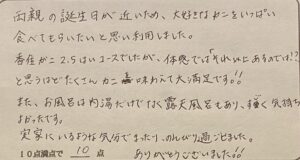 両親の誕生日が近いため、大好きなカニをいっぱい
食べてもらいたいと思い利用しました。
香住ガニ2.5はいコースでしたが、体感では「それ以上あるのでは!?」
と思うほどたくさんカニ味わえて大満足です!!
また、お風呂は内湯だけでなく露天風呂もあり、凄く気持ち
よかったです。
実家にいるような気分でまったり、のんびり過ごせました。
10点満点で 10 点 ありがとうございました!!